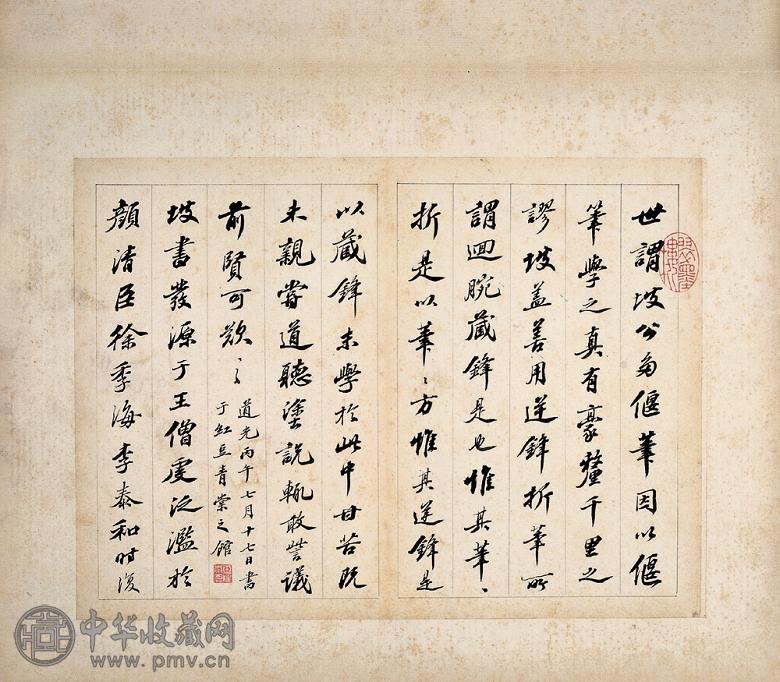 世謂坡公為偃筆因以偃
筆學之真有豪釐千里之
謬坡蓋善用逆鋒折筆所
謂迴腕藏鋒是也惟其筆、
折是以筆、方惟其逆鋒是
以藏鋒末學於此中甘苦既
未親嘗道聽塗說輒敢訾議
前賢可歎、、
道光丙午七月十七日書
于紅豆青棠之館
坡書發源于王僧虔泛濫於
顏清臣徐季海李泰和時復
中华收藏网
www.pmv.cn